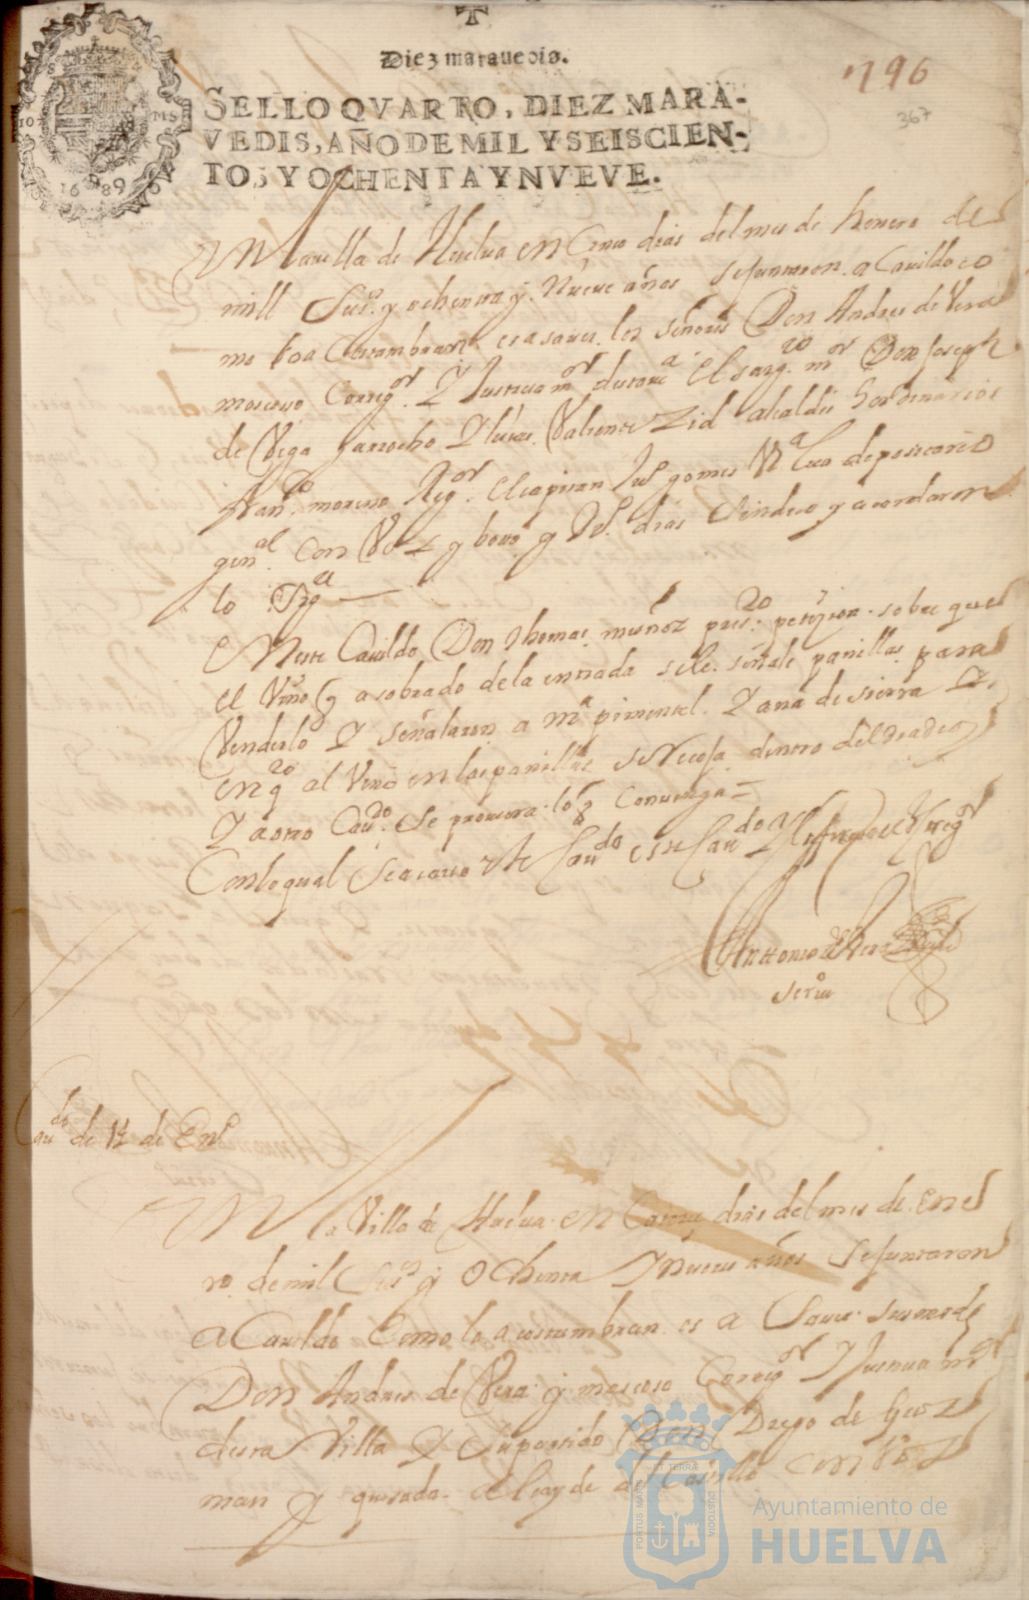 Diez maravedis.
SELLO QVARTO, DIEZ MARA-
VEDIS, AÑO DE MIL Y SEISCIEN-
TOS Y OCHENTA Y NVEVE.
1689
796
367
En la villa de Huelva en dias del mes de henero de
mill Seisº y ochenta y Nueve años se juntaron a Cavildo co
mo lo a Costumbran es a saver los señores Don Andres de Vera
moscoso Corregor Y Justicia mor desta vª El sargto mor Don Joseph
de Vega garrocho Y luis Valiente Zid alcaldes hordinarios
franco moreno Regor El capitan Juº gomes depositario
genal Con Voz y boto y dias Sindico y acordaron
lo Sigte
En este Cavildo Don thomas muñoz presto petizion sobre que
el Vino q a sobrado de la entrada se le señale panillas para
Venderlo Y señalaron a mª pimentel Y ana de sierra Y
en qto al Vino en las panillas se Recoja dentro del
Y a otro Cavdo se proveera lo q Convenga =
Con lo qual se acavo este Cavdo
Anttonio de Vera
scrivº
Cavdo de 14 de Enº
En la Villa de Huelva en Catorze dias del mes de Ene
ro de mil Seisº y Ochenta Y Nueve años se juntaron
a Cavildo Como lo acostumbran es a Saver su merced
Don Andres de Vera y moscoso Corregor Y Justicia mor
desta Villa Y Su partido Don Diego de Guz
man Y quesada alcayde del Castillo con Voz
PORTUS MARIS ET TERRAE CUSTODIA
Ayuntamiento de
HUELVA